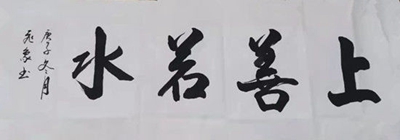 上善若水
庚子冬月